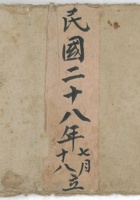 民國二十八年七月十八立